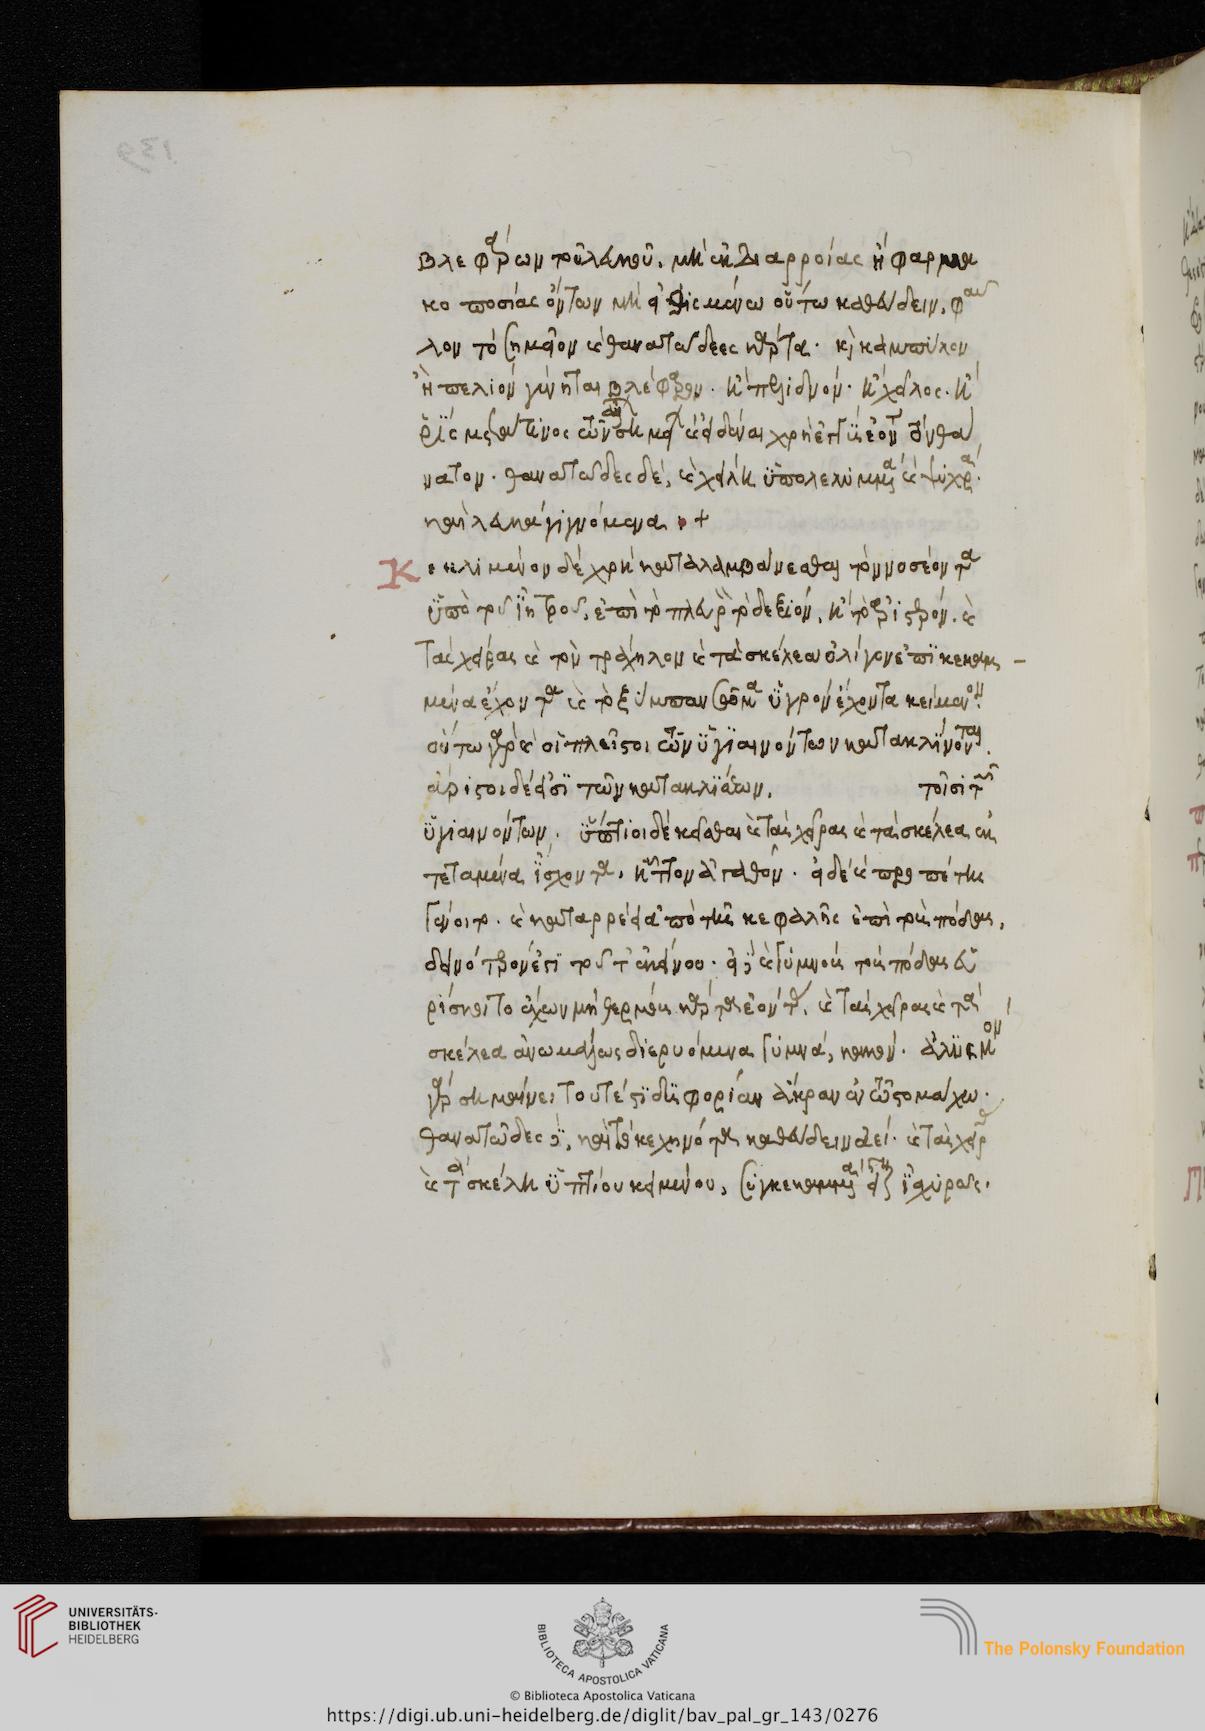 139
βλεφάρων τοῦ λευκοῦ. μὴ ἐκ διαρροίας ἢ φαρμα
κοποσίας ὄντων μὴ εἰθισμένω οὕτω καθεύδειν. φαῦ
λον τὸ σημεῖον καὶ θανατῶδες κάρτα. κἢν καμπύλον
ἢ πελιὸν γένηται βλέφαρον. ἢ πελιδνόν. ἢ χεῖλος. ἢ
ῥὶς μετά τινος τῶν σημείων εἰδέναι χρὴ ἐγγὺς ἐόντα θάνα
νατον. θανατῶδες δὲ, καὶ χείλη ἀπολελυμένα καὶ ψυχρὰ.
καὶ λευκὰ γιγνόμενα +
Κεκλιμένον δὲ χρὴ καταλαμβάνεσθαι τὸν νοσέοντα
ὑπὸ τοῦ ἰητροῦ, ἐπὶ τὸ πλευρὸν τὸ δεξιὸν, ἢ τὸ ἀριστερόν. καὶ
τὰς χεῖρας καὶ τὸν τράχηλον καὶ τὰ σκέλεα ὀλίγον ἐπικεκαμ
μένα ἔχοντα καὶ τὸ ξύμπαν σῶμα ὑγρὸν ἔχοντα κείμενον.
οὕτω γὰρ καὶ οἱ πλεῖστοι τῶν ὑγιαινόντων κατακλίνονται.
ἄρισται δέ εἰσι τῶν κατακλισίων. τοῖσι τῶν
ὑγιαινόντων. ὕπτιον δὲ κεῖσθαι καὶ τὰς χεῖρας καὶ τὰ σκέλεα ἐκ
τεταμένα ἴσχοντα, ἧττον ἀγαθόν. εἰ δὲ καὶ προπετὴς
γένοιτο. καὶ καταρρέει ἀπὸ τῆς κεφαλῆς ἐπὶ τοὺς πόδας.
δεινότερόν ἐστι τοῦτ' ἐκείνου. εἰ δὲ καὶ γυμνοὺς τοὺς πόδας εὑ
ρίσκοιτο ἔχων μὴ θερμοὺς κάρτα ἐόντας, καὶ τὰς χεῖρας καὶ τὰ
σκέλεα ἀνωμάλως διερυόμενα γυμνά, κακόν. ἀλυσμὸν
γὰρ σημαίνει τουτέστι δυσφορίαν ἄκραν ἐν τῷ στομάχω.
θανατῶδες δὲ, καὶ τὸ κεχηνότα καθεύδειν αἰεί. καὶ τὰς χεῖρας
καὶ τὰ σκέλη ὑπτίου κειμένου, συγκεκαμμένα εἶναι ἰσχυρῶς.
UNIVERSITÄTS-
BIBLIOTHEK
HEIDELBERG
BIBLIOTECA APOSTOLICA VATICANA
The Polonsky Foundation
© Biblioteca Apostolica Vaticana
https://digi.ub.uni-heidelberg.de/diglit/bav_pal_gr_143/0276